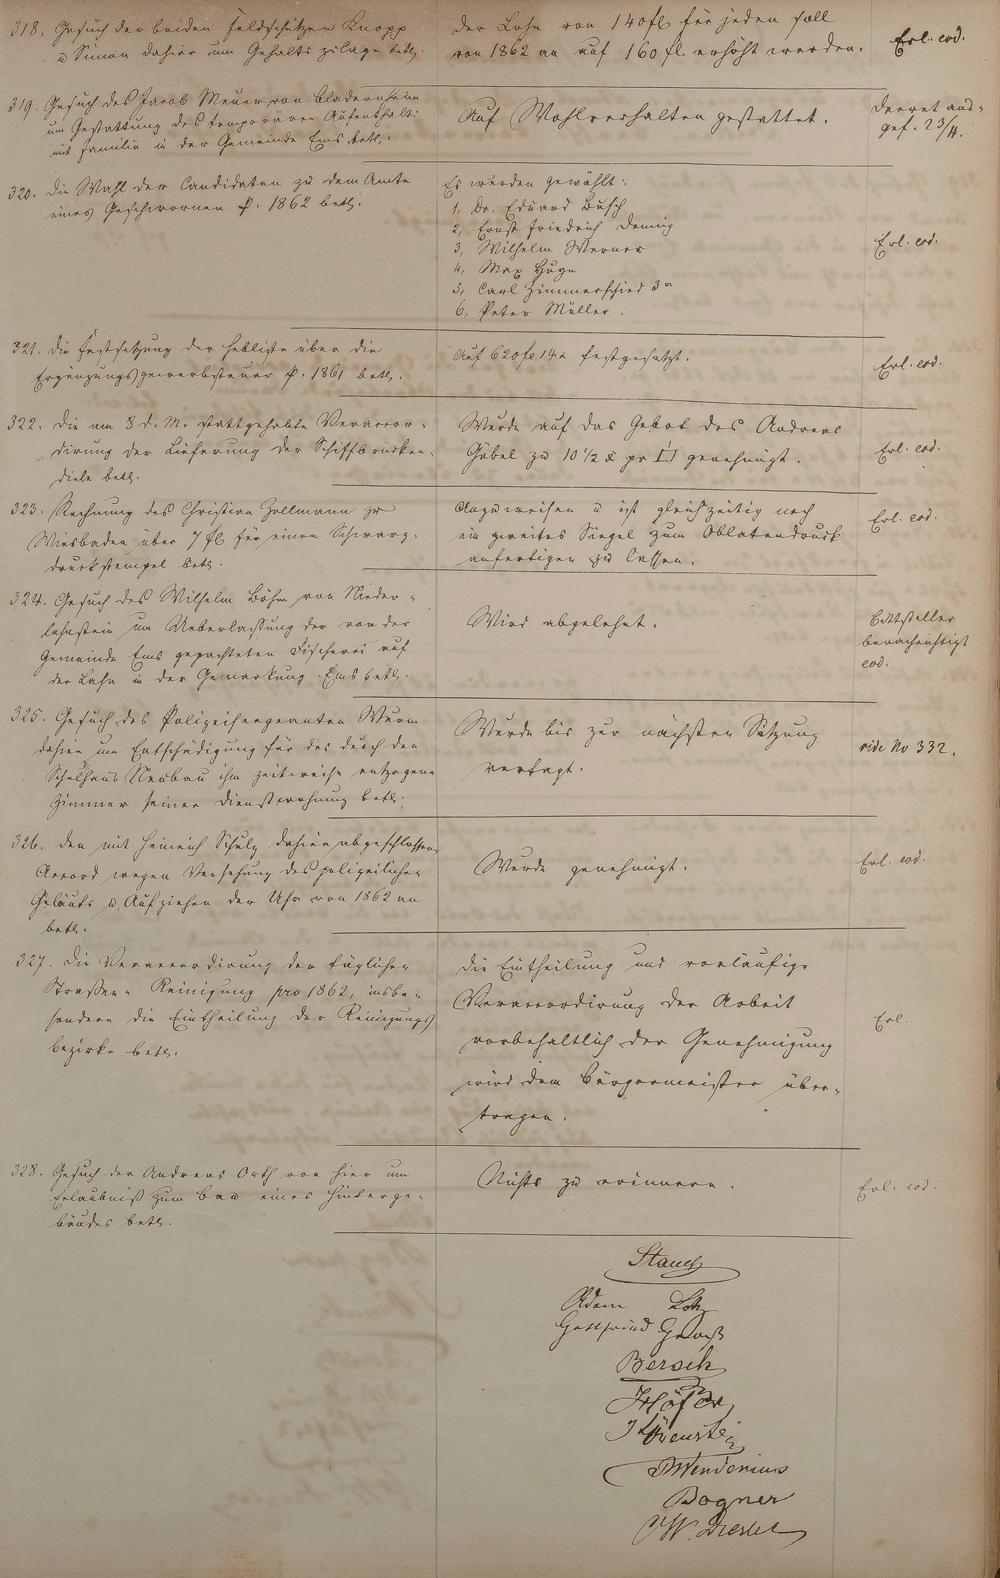 318. Gesuch der beiden Feldschützen Knopp
u Simon dahier um Gehaltszulage betr.
Der Lohn von 140 fl für jeden soll
von 1862 an auf 160 fl. erhöht werden.
Erl. eod.
319. Gesuch des Jacob Meuer von Bladernheim
um Gestattung des temporären Aufenthalts
mit Familie in der Gemeinde Ems betr.
Auf Wohlverhalten gestattet.
Decret aus-
gef. 23/4.
320. Die Wahl der Candidaten zu dem Amte
eines Geschwornen p. 1862 betr.
Es wurden gewählt:
1, Dr. Eduard Busch
2, Ernst Friedrich
3, Wilhelm Werner
4, Max
5, Carl Zimmerschied 3r
6, Peter Müller.
Erl. eod.
321. Die Festsetzung der Hebliste über die
Ergänzungsgewerbsteuer p. 1861 betr.
Auf 620 fl 14 x festgesetzt.
Erl. eod.
322. Die am 8 d. M. stattgehabte Veraccor-
dirung der Lieferung der Schiffbrücken-
diele betr.
Wurde auf das Gebot des Andreas
Göbel zu 10 1/2 x pr □' genehmigt.
Erl. eod.
323. Rechnung des Christian Zollmann zu
Wiesbaden über 7 fl für einen Schwarz-
druckstempel betr.
Anzuweisen u ist gleichzeitig noch
ein zweites Siegel zum Oblatendruck
anfertigen zu lassen.
Erl. eod.
324. Gesuch des Wilhelm Böhm von Nieder-
lahnstein um Ueberlassung der von der
Gemeinde Ems gepachteten Fischerei auf
der Lahn in der Gemarkung Ems betr.
Wird abgelehnt.
Bittsteller
benachrichtigt
eod.
325. Gesuch des Polizeisergeanten Wurm
dahier um Entschädigung für das durch den
Schulhaus Neubau ihm zeitweise entzogene
Zimmer seiner Dienstwohnung betr.
Wurde bis zur nächsten Sitzung
vertagt.
vide No 332.
326. Den mit Heinrich Schulz dahier abgeschlossenen
Accord wegen Versehung des polizeilichen
Geläuts u. Aufziehen der Uhr von 1862 an
betr.
Wurde genehmigt.
Erl. eod.
327. Die Veraccordirung der täglichen
Straßen-Reinigung pro 1862, insbe-
sondere die Eintheilung der Reinigungs
bezirke betr.
Die Eintheilung und vorläufige
Veraccordirung der Arbeit
vorbehaltlich der Genehmigung
wird dem Bürgermeister über-
tragen.
Erl.
328. Gesuch des Andreas Orth von hier um
Erlaubniß zum Bau eines Hinterge-
bäudes betr.
Nichts zu erinnern.
Erl. eod.
Adam
Gottfried
Bersch
Höfer
Wendenius
Bogner